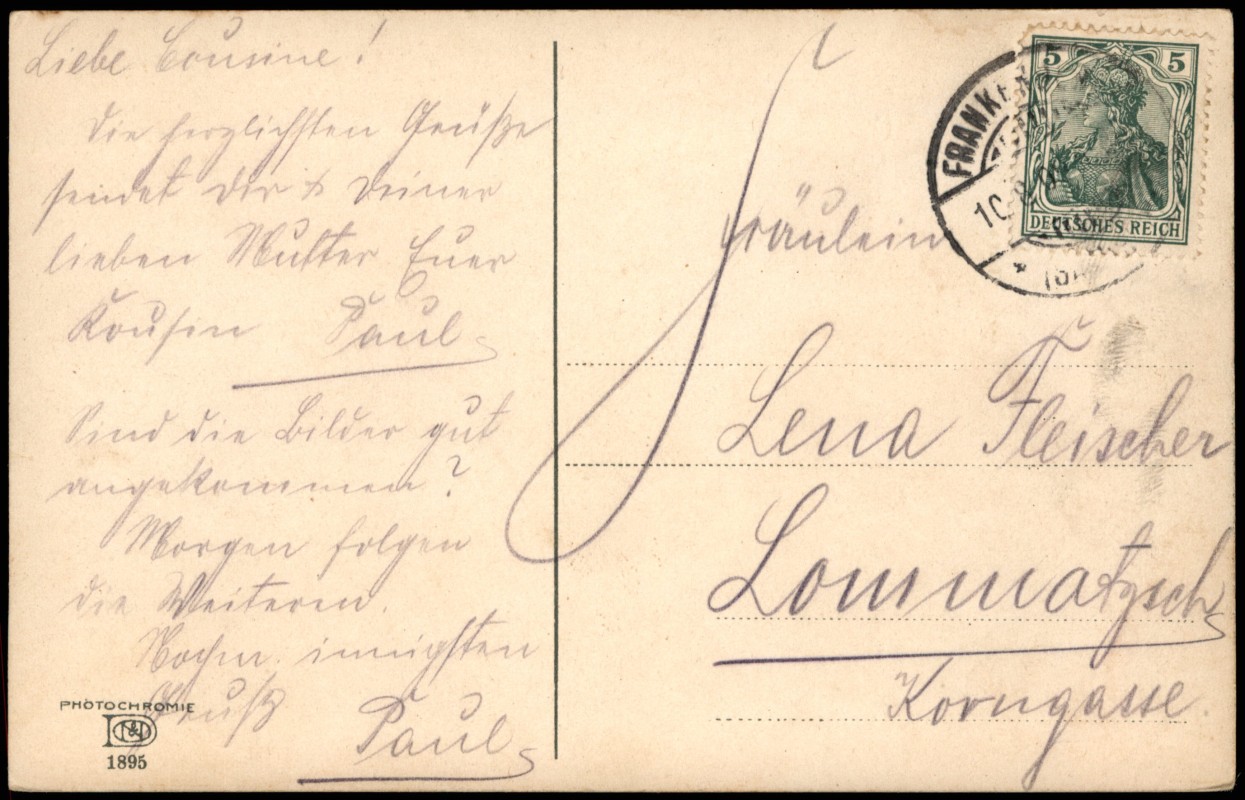 Liebe Cousine!
Die herzlichsten Grüße
sendet Dir & Deiner
lieben Mutter Euer
Kousin Paul
Sind die Bilder gut
angekommen?
Morgen folgen
die Weiteren.
Nochm. innigsten
Gruß
Paul
PHOTOCHROMIE
1895
5 5
DEUTSCHES REICH
FRANKE
Fräulein
Lena Fleischer
Lommatzsch
Korngasse.